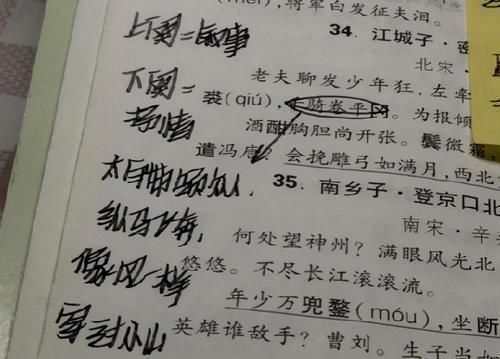 将军白发征夫泪。
上阕=叙事
34. 江城子·密
北宋·
下阕=
老夫聊发少年狂，左牵
裘(qiú)，千骑卷平冈。为报倾
抒情
酒酣胸胆尚开张。鬓微霜
遣冯唐？会挽雕弓如满月，西北
35. 南乡子·登京口北
南宋·辛
纵马飞奔，
何处望神州？满眼风光北
像风一样
悠悠。不尽长江滚滚流。
年少万兜鍪(móu)，坐断
穿过小山
英雄谁敌手？曹刘。生子当